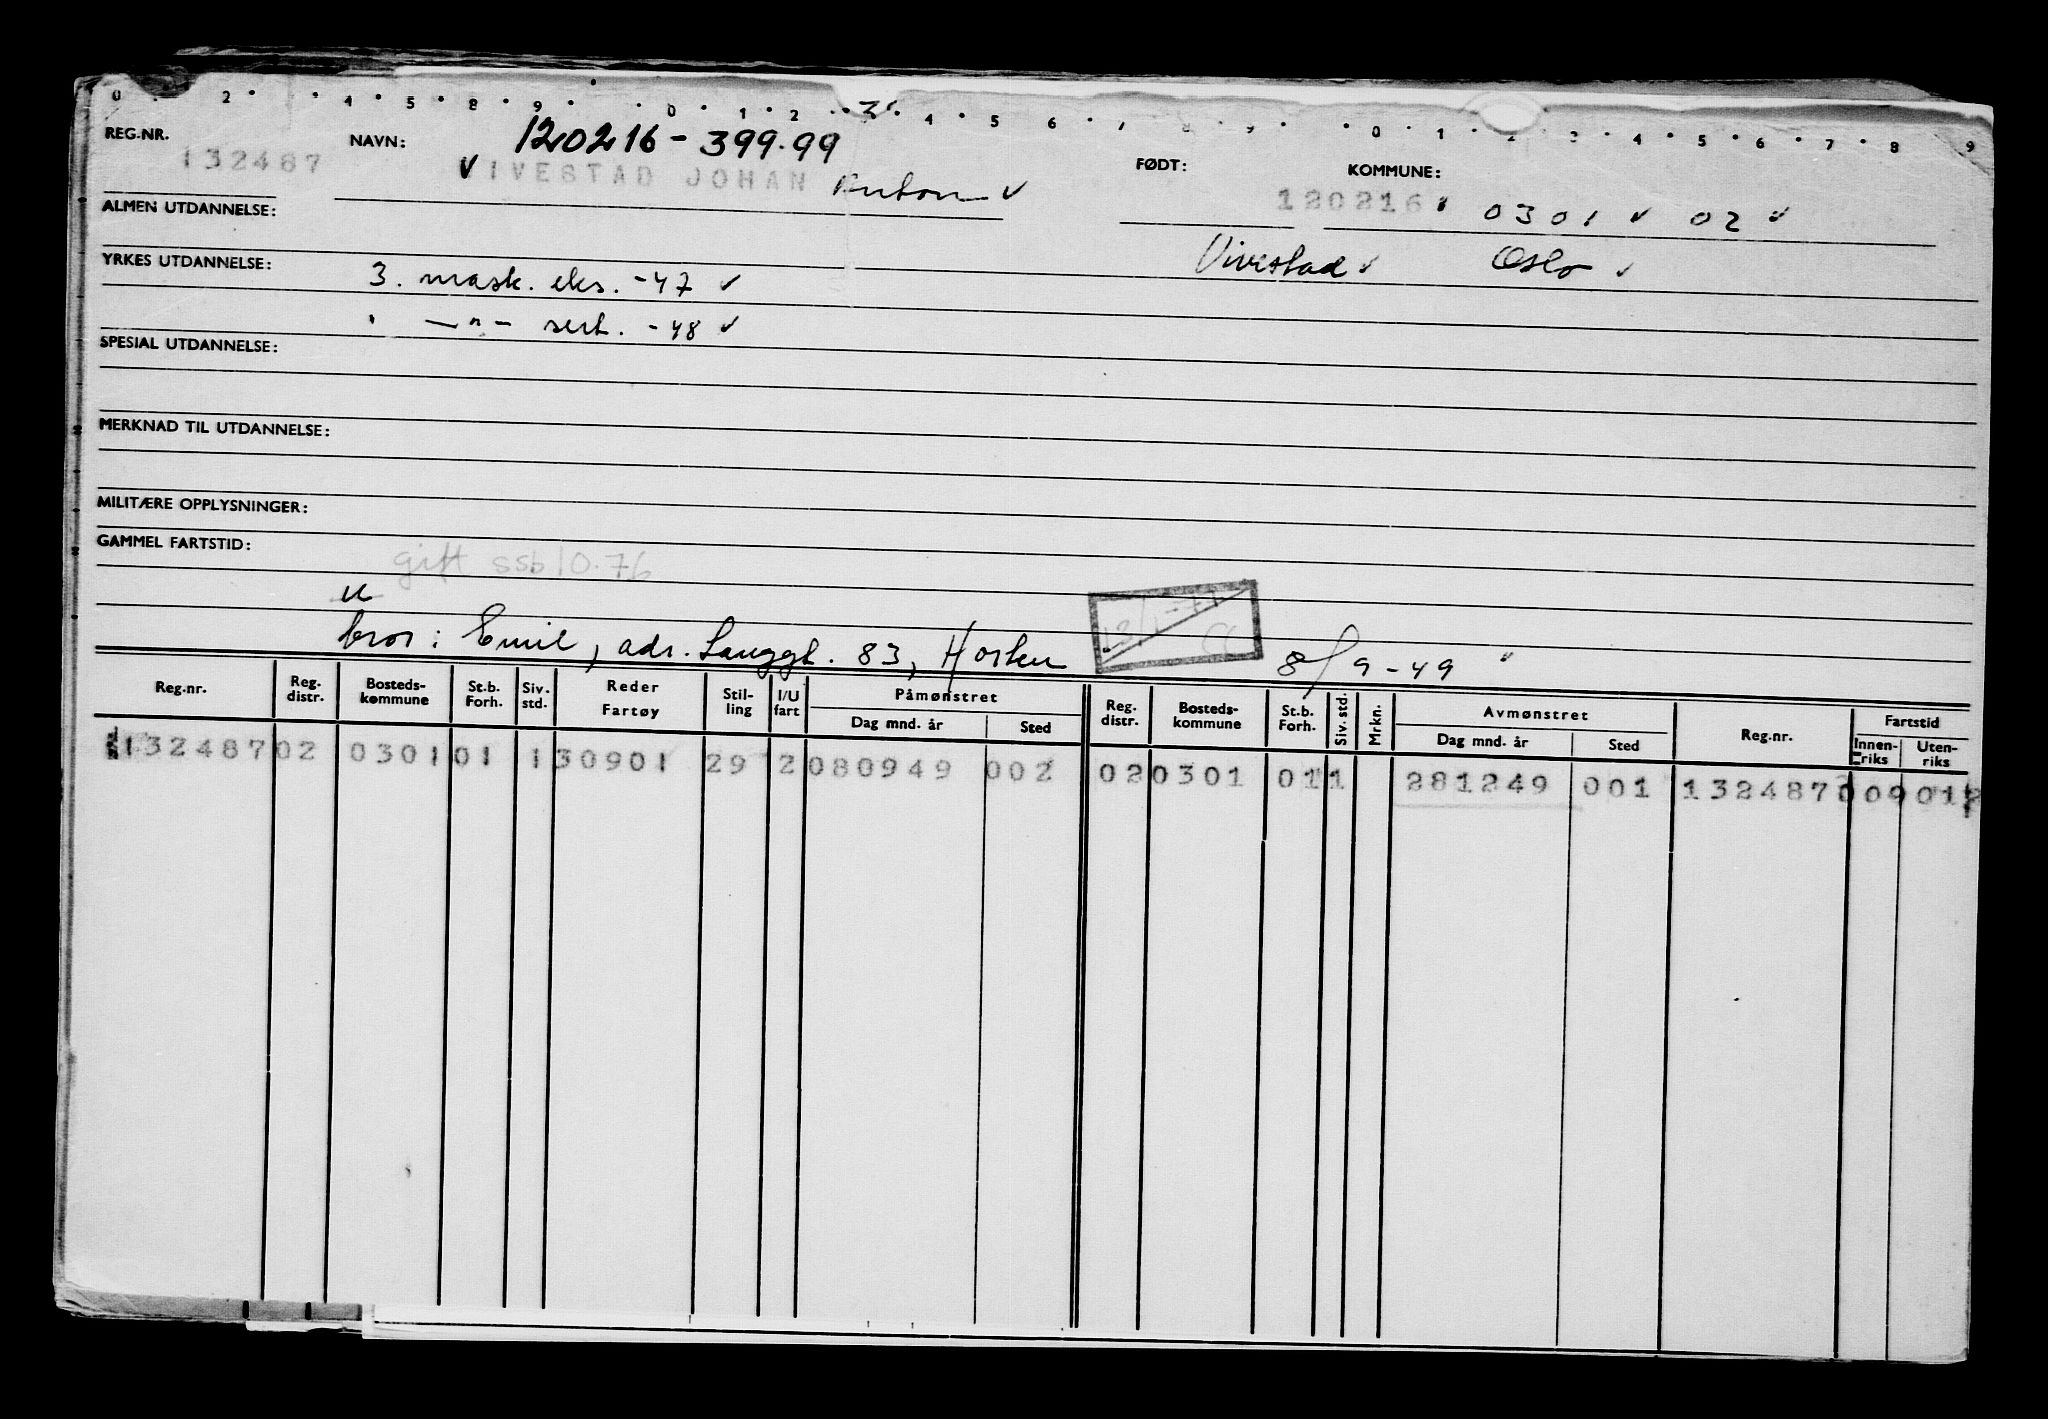 0 2 4 5 8 9 0 1 2 3 4 5 6 7 8 9 0 1 2 3 4 5 6 7 8 9
REG.NR. NAVN: 120216-399.99 FØDT: KOMMUNE:
132487 VIVESTAD JOHAN Anton ✓ 120216 0301 ✓ 02 ✓
ALMEN UTDANNELSE: Vivestad ✓ Oslo ✓
YRKES UTDANNELSE: 3. mask. eks. -47 ✓
" —"— sert. -48 ✓
SPESIAL UTDANNELSE:
MERKNAD TIL UTDANNELSE:
MILITÆRE OPPLYSNINGER:
GAMMEL FARTSTID:
gift ssb 10.76
u
bror: Emil, adr. Langgt. 83, Horten 8/9-49 "
Reg.nr. Reg. distr. Bosteds-kommune St.b. Forh. Siv. std. Reder Fartøy Stil-ling I/U fart Påmønstret Dag mnd. år Sted Reg. distr. Bosteds-kommune St.b. Forh. Siv. std. Mrkn. Avmønstret Dag mnd. år Sted Reg.nr. Fartstid Innen-riks Uten-riks
132487 02 0301 01 1 30901 29 2 080949 002 02 0301 01 1 281249 001 132487 009 012